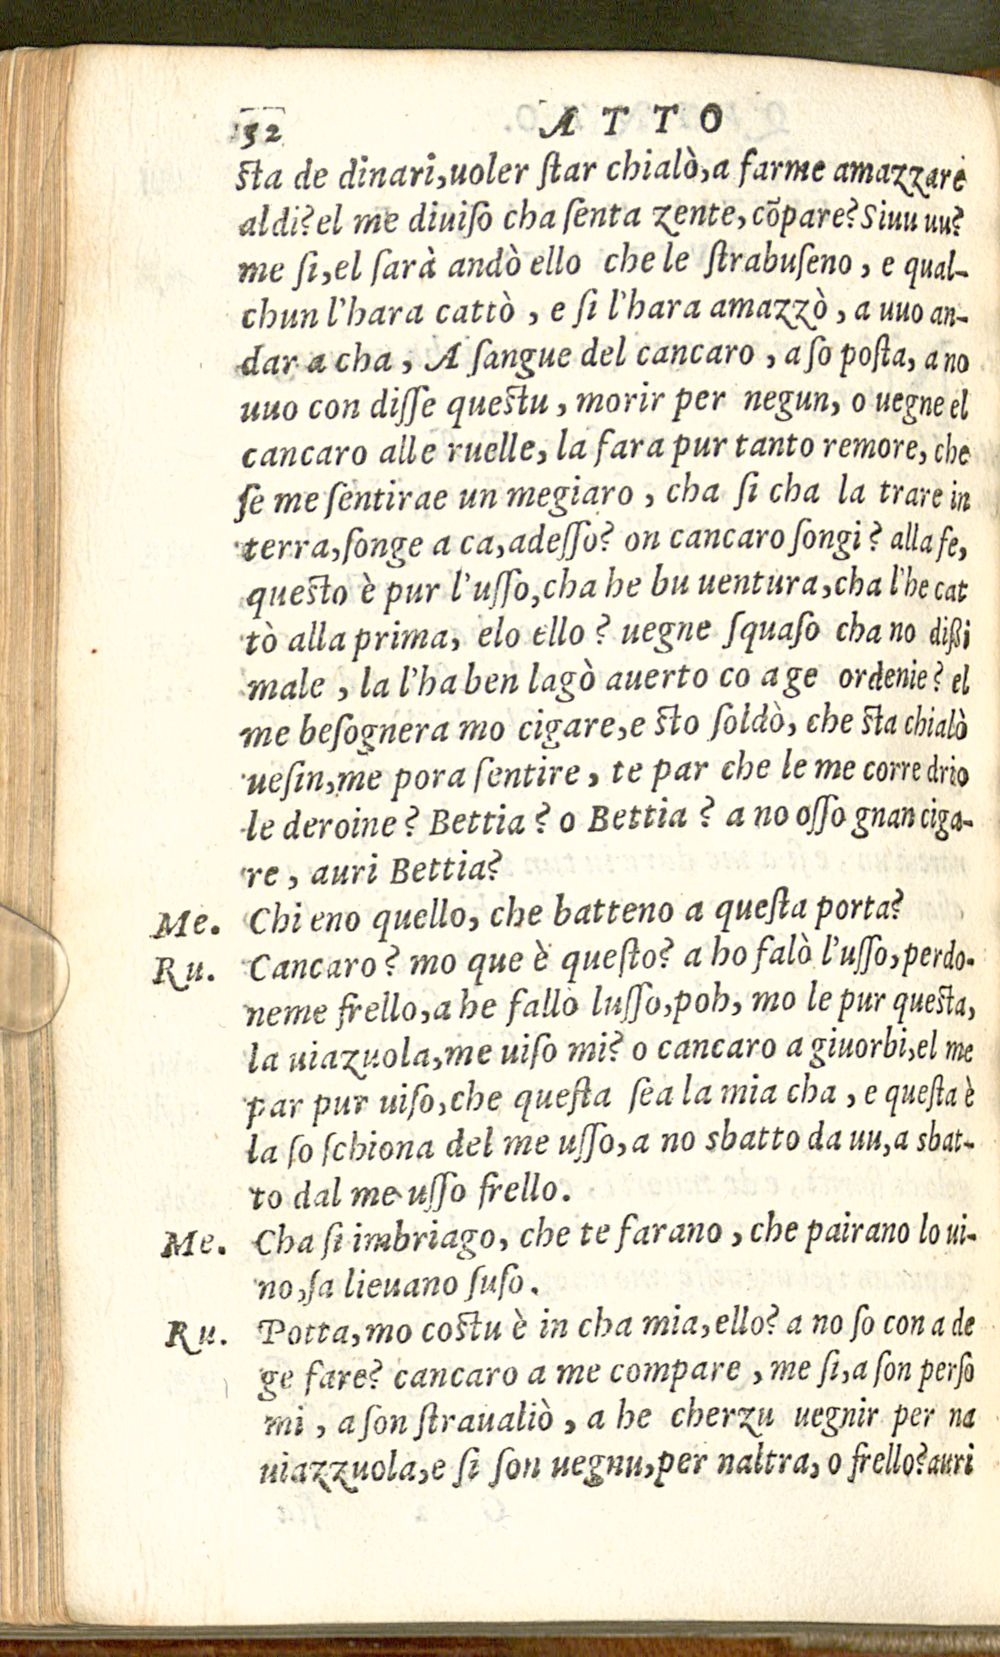 52 ATTO
sta de dinari,uoler ſtar chialò,a farme amazzare
aldi?el me diuiſo cha ſenta zente, cõpare? Siuu uu?
me ſi,el ſarà andò ello che le ſtrabuſeno , e qual-
chun l'hara cattò , e ſi l'hara amazzò , a uuo an-
dar a cha , A ſangue del cancaro , a ſo poſta, a no
uuo con diſſe questu , morir per negun, o uegne el
cancaro alle ruelle, la fara pur tanto remore, che
ſe me ſentirae un megiaro , cha ſi cha la trare in
terra,ſonge a ca,adeſſo? on cancaro ſongi? alla fe,
questo è pur l'uſſo,cha he bu uentura,cha l'he cat
tò alla prima, elo ello ? uegne ſquaſo cha no dißi
male , la l'ha ben lagò auerto co a ge ordenie? el
me beſognera mo cigare,e sto ſoldò, che sta chialò
ueſin,me pora ſentire , te par che le me corre drio
le deroine? Bettia? o Bettia ? a no oſſo gnan ciga-
re , auri Bettia?
Me. Chi eno quello, che batteno a queſta porta?
Ru. Cancaro? mo que è queſto? a ho falò l'uſſo,perdo-
neme frello,a he fallò luſſo,poh, mo le pur questa,
la uiazuola,me uiſo mi? o cancaro a giuorbi,el me
par pur uiſo,che queſta ſea la mia cha , e queſta è
la ſo ſchiona del me uſſo,a no sbatto da uu,a sbat-
to dal me uſſo frello.
Me. Cha ſi imbriago, che te farano , che pairano lo ui-
no,ſa lieuano ſuſo.
Ru. Potta,mo costu è in cha mia,ello? a no ſo con a de
ge fare? cancaro a me compare , me ſi,a ſon perſo
mi , a ſon ſtraualiò , a he cherzu uegnir per na
uiazzuola,e ſi ſon uegnu,per naltra, o frello?auri